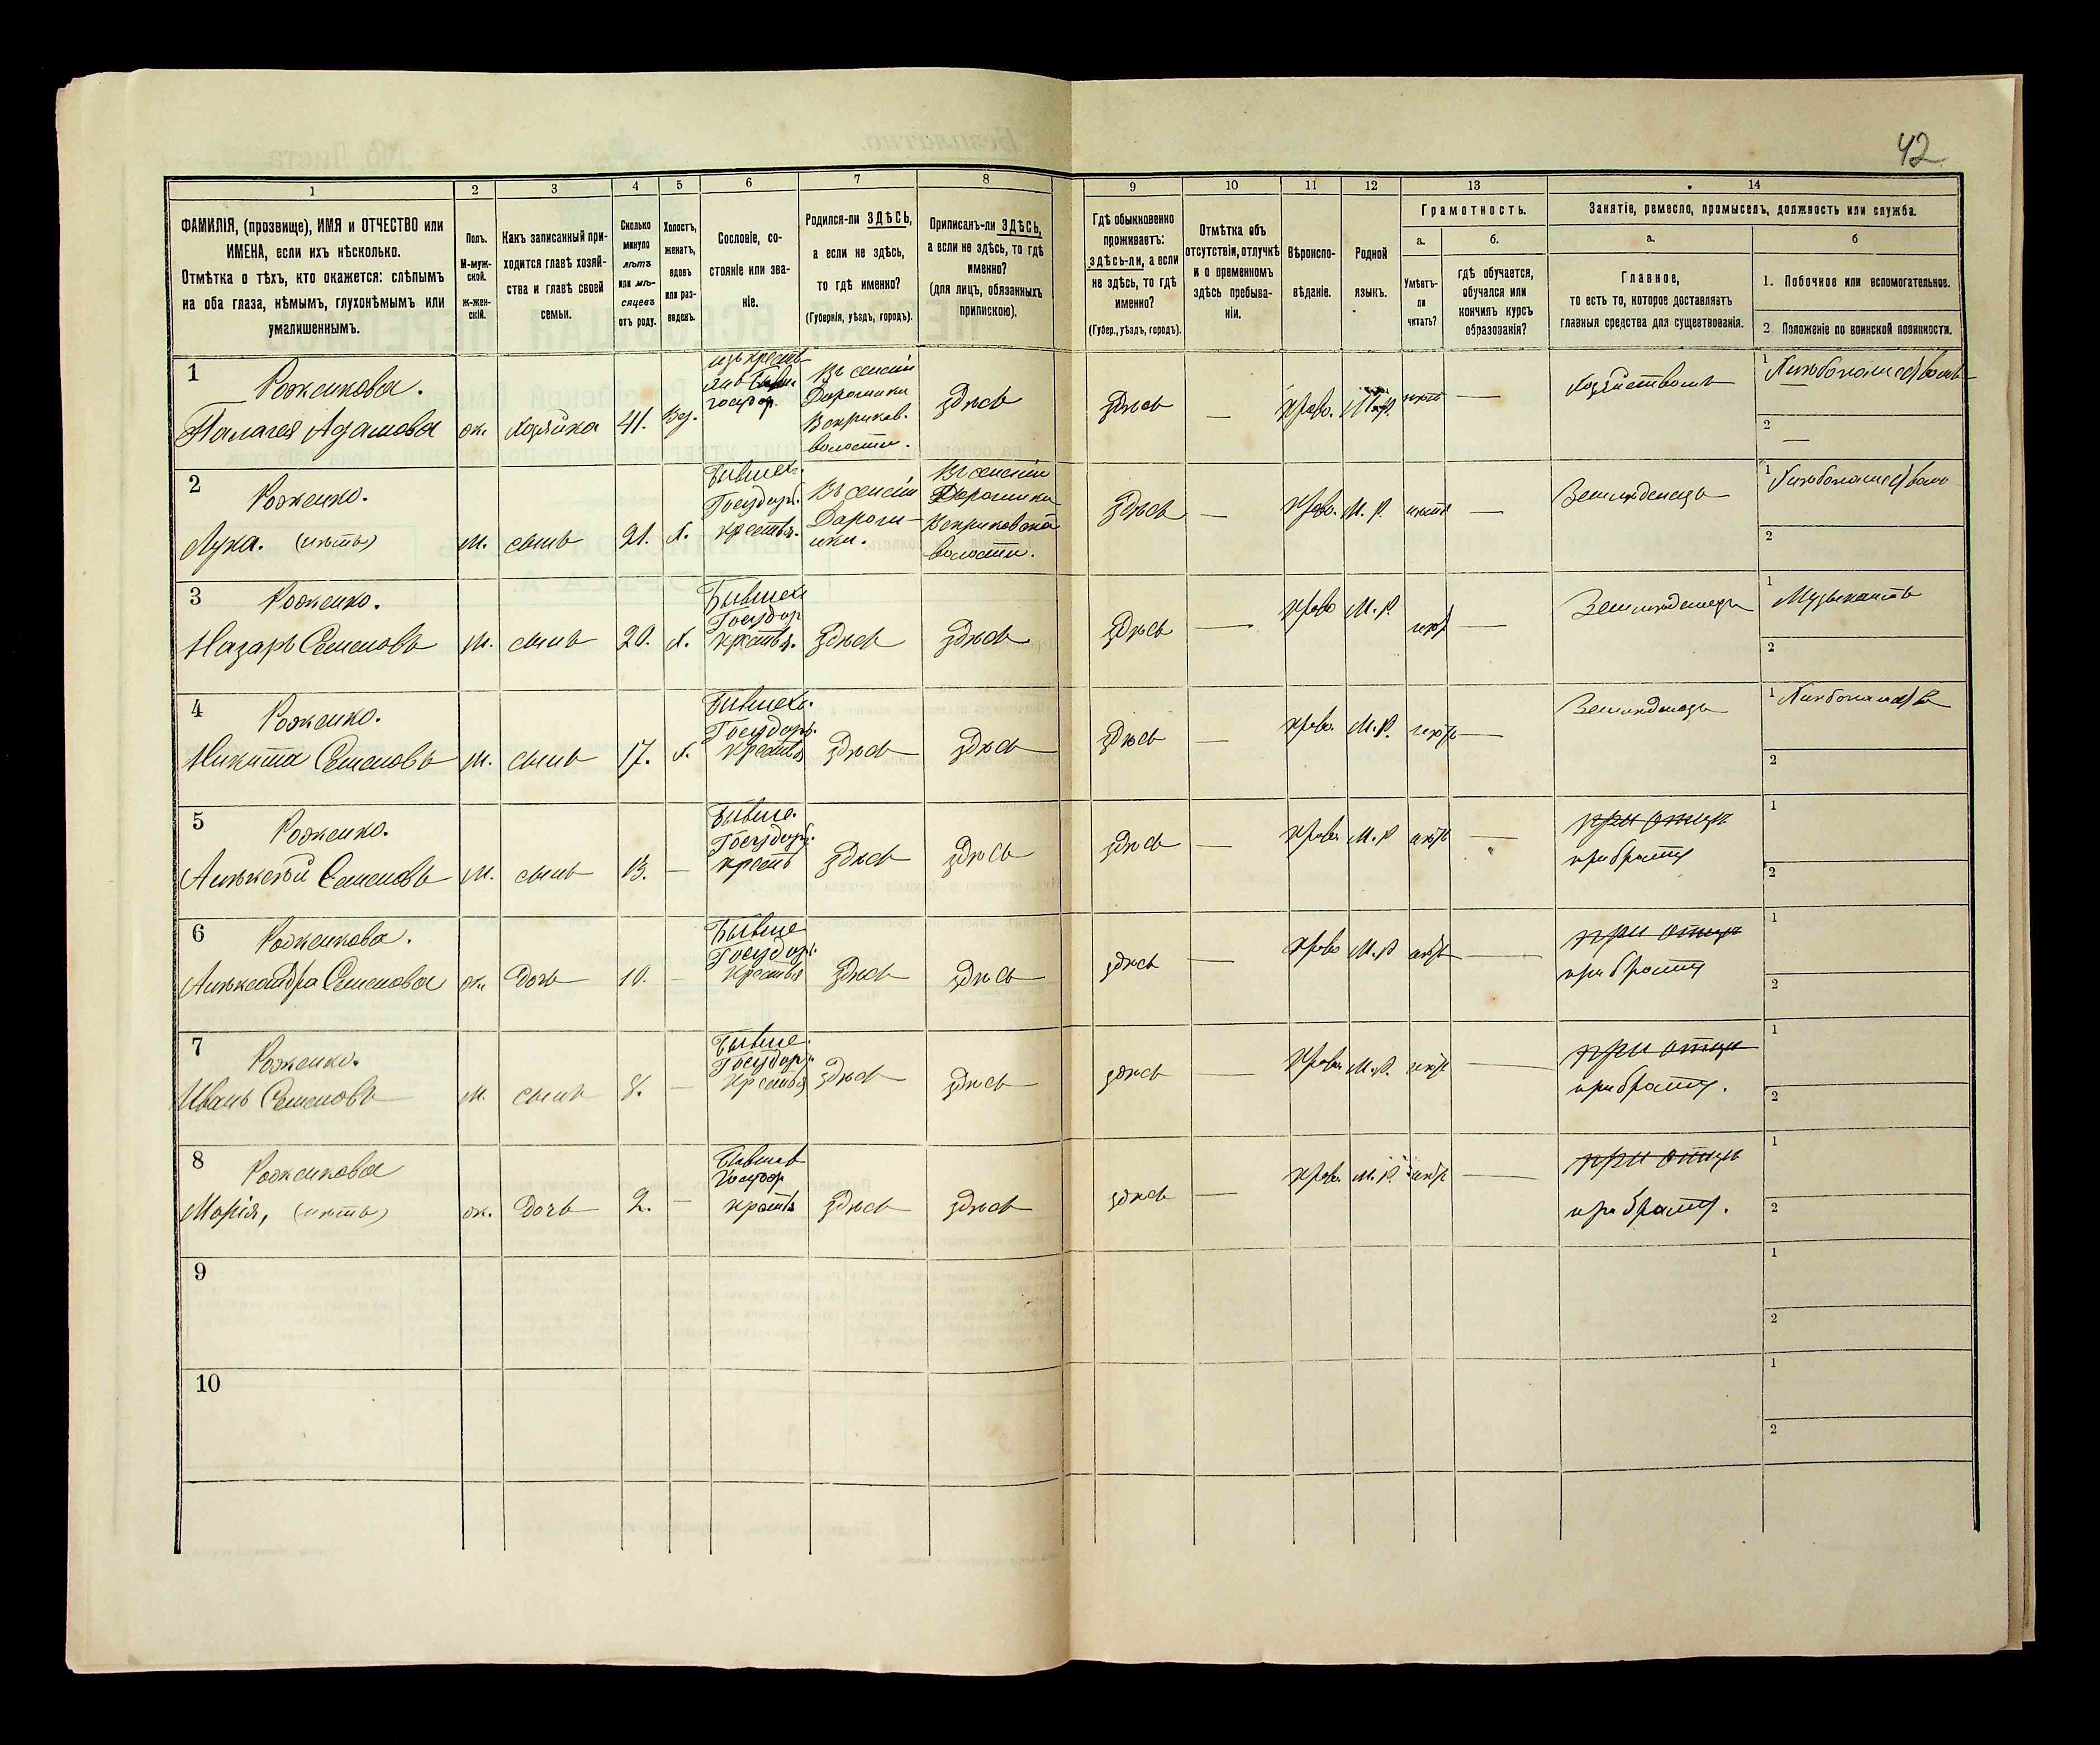 42
1 2 3 4 5 6 7 8 9 10 11 12 13 14
ФАМИЛІЯ, (прозвище), ИМЯ и ОТЧЕСТВО или
ИМЕНА, если ихъ нѣсколько.
Отмѣтка о тѣхъ, кто окажется: слѣпымъ
на оба глаза, нѣмымъ, глухонѣмымъ или
умалишеннымъ.
Полъ.
М-муж-
ской.
ж-жен-
скій.
Какъ записанный при-
ходится главѣ хозяй-
ства и главѣ своей
семьи.
Сколько
минуло
лѣтъ
или мѣ-
сяцевъ
отъ роду.
Холостъ,
женатъ,
вдовъ
или раз-
веденъ.
Сословіе, со-
стояніе или зва-
ніе.
Родился-ли ЗДѢСЬ,
а если не здѣсь,
то гдѣ именно?
(Губернія, уѣздъ, городъ).
Приписанъ-ли ЗДѢСЬ,
а если не здѣсь, то гдѣ
именно?
(для лицъ, обязанныхъ
припискою).
Гдѣ обыкновенно
проживаетъ:
здѣсь-ли, а если
не здѣсь, то гдѣ
именно?
(Губер., уѣздъ, городъ).
Отмѣтка объ
отсутствіи, отлучкѣ
и о временномъ
здѣсь пребыва-
ніи.
Вѣроиспо-
вѣданіе.
Родной
языкъ.
Грамотность.
а.
Умѣетъ-
ли
читать?
б.
гдѣ обучается,
обучался или
кончилъ курсъ
образованія?
Занятіе, ремесло, промыселъ, должность или служба.
а.
Главное,
то есть то, которое доставляетъ
главныя средства для существованія.
б
1. Побочное или вспомогательное.
2. Положеніе по воинской повинности.
1
Роженкова.
Палагея Адамова
ж. хозяйка 41. вд.
Въ селеніи
волости.
здѣсь
здѣсь
—
Право.
нѣтъ
—
1
2
—
2
Роженко.
Лука. (нѣтъ)
м. сынъ 21. х.
Бывшех.
Государ.
крестья.
Въ селеніи
Въ селеніи
волости.
здѣсь
—
Право. М. Р. нѣтъ —
Земледелецъ
1
2
3
Роженко.
Назаръ Семеновъ
м. сынъ 20. х.
Бывшех
Государ
крестья.
здѣсь здѣсь
здѣсь — Право М. Р. нѣт —
Земледелецъ
1 Музыкантъ
2
4
Роженко.
Никита Семеновъ
м. сынъ 17. х.
Бывшехъ.
Государ.
крестья
здѣсь здѣсь
здѣсь — Право. М. Р. нѣтъ —
Земледелецъ
1
2
5
Роженко.
Алѣксѣй Семеновъ
м. сынъ 13. —
Бывше.
Государ.
крест
здѣсь здѣсь
здѣсь — Право М. Р нѣтъ —
при отцѣ
при братѣ
1
2
6
Роженкова.
Алѣксандра Семенова
ж. дочь 10. —
Бывше
Государ.
крестья
здѣсь здѣсь
здѣсь — Право М. Р нѣтъ —
при отцѣ
при братѣ
1
2
7
Роженко.
Иванъ Семеновъ
м. сынъ 8. —
Бывше.
Государ.
крестья
здѣсь здѣсь
здѣсь — Право М. Р. нѣтъ —
при отцѣ
при братѣ.
1
2
8
Роженкова
Марія, (нѣтъ)
ж. дочь 2. —
Государ
крестья
здѣсь здѣсь
здѣсь — Право. М. Р. нѣтъ —
при отцѣ
при братѣ.
1
2
9
1
2
10
1
2